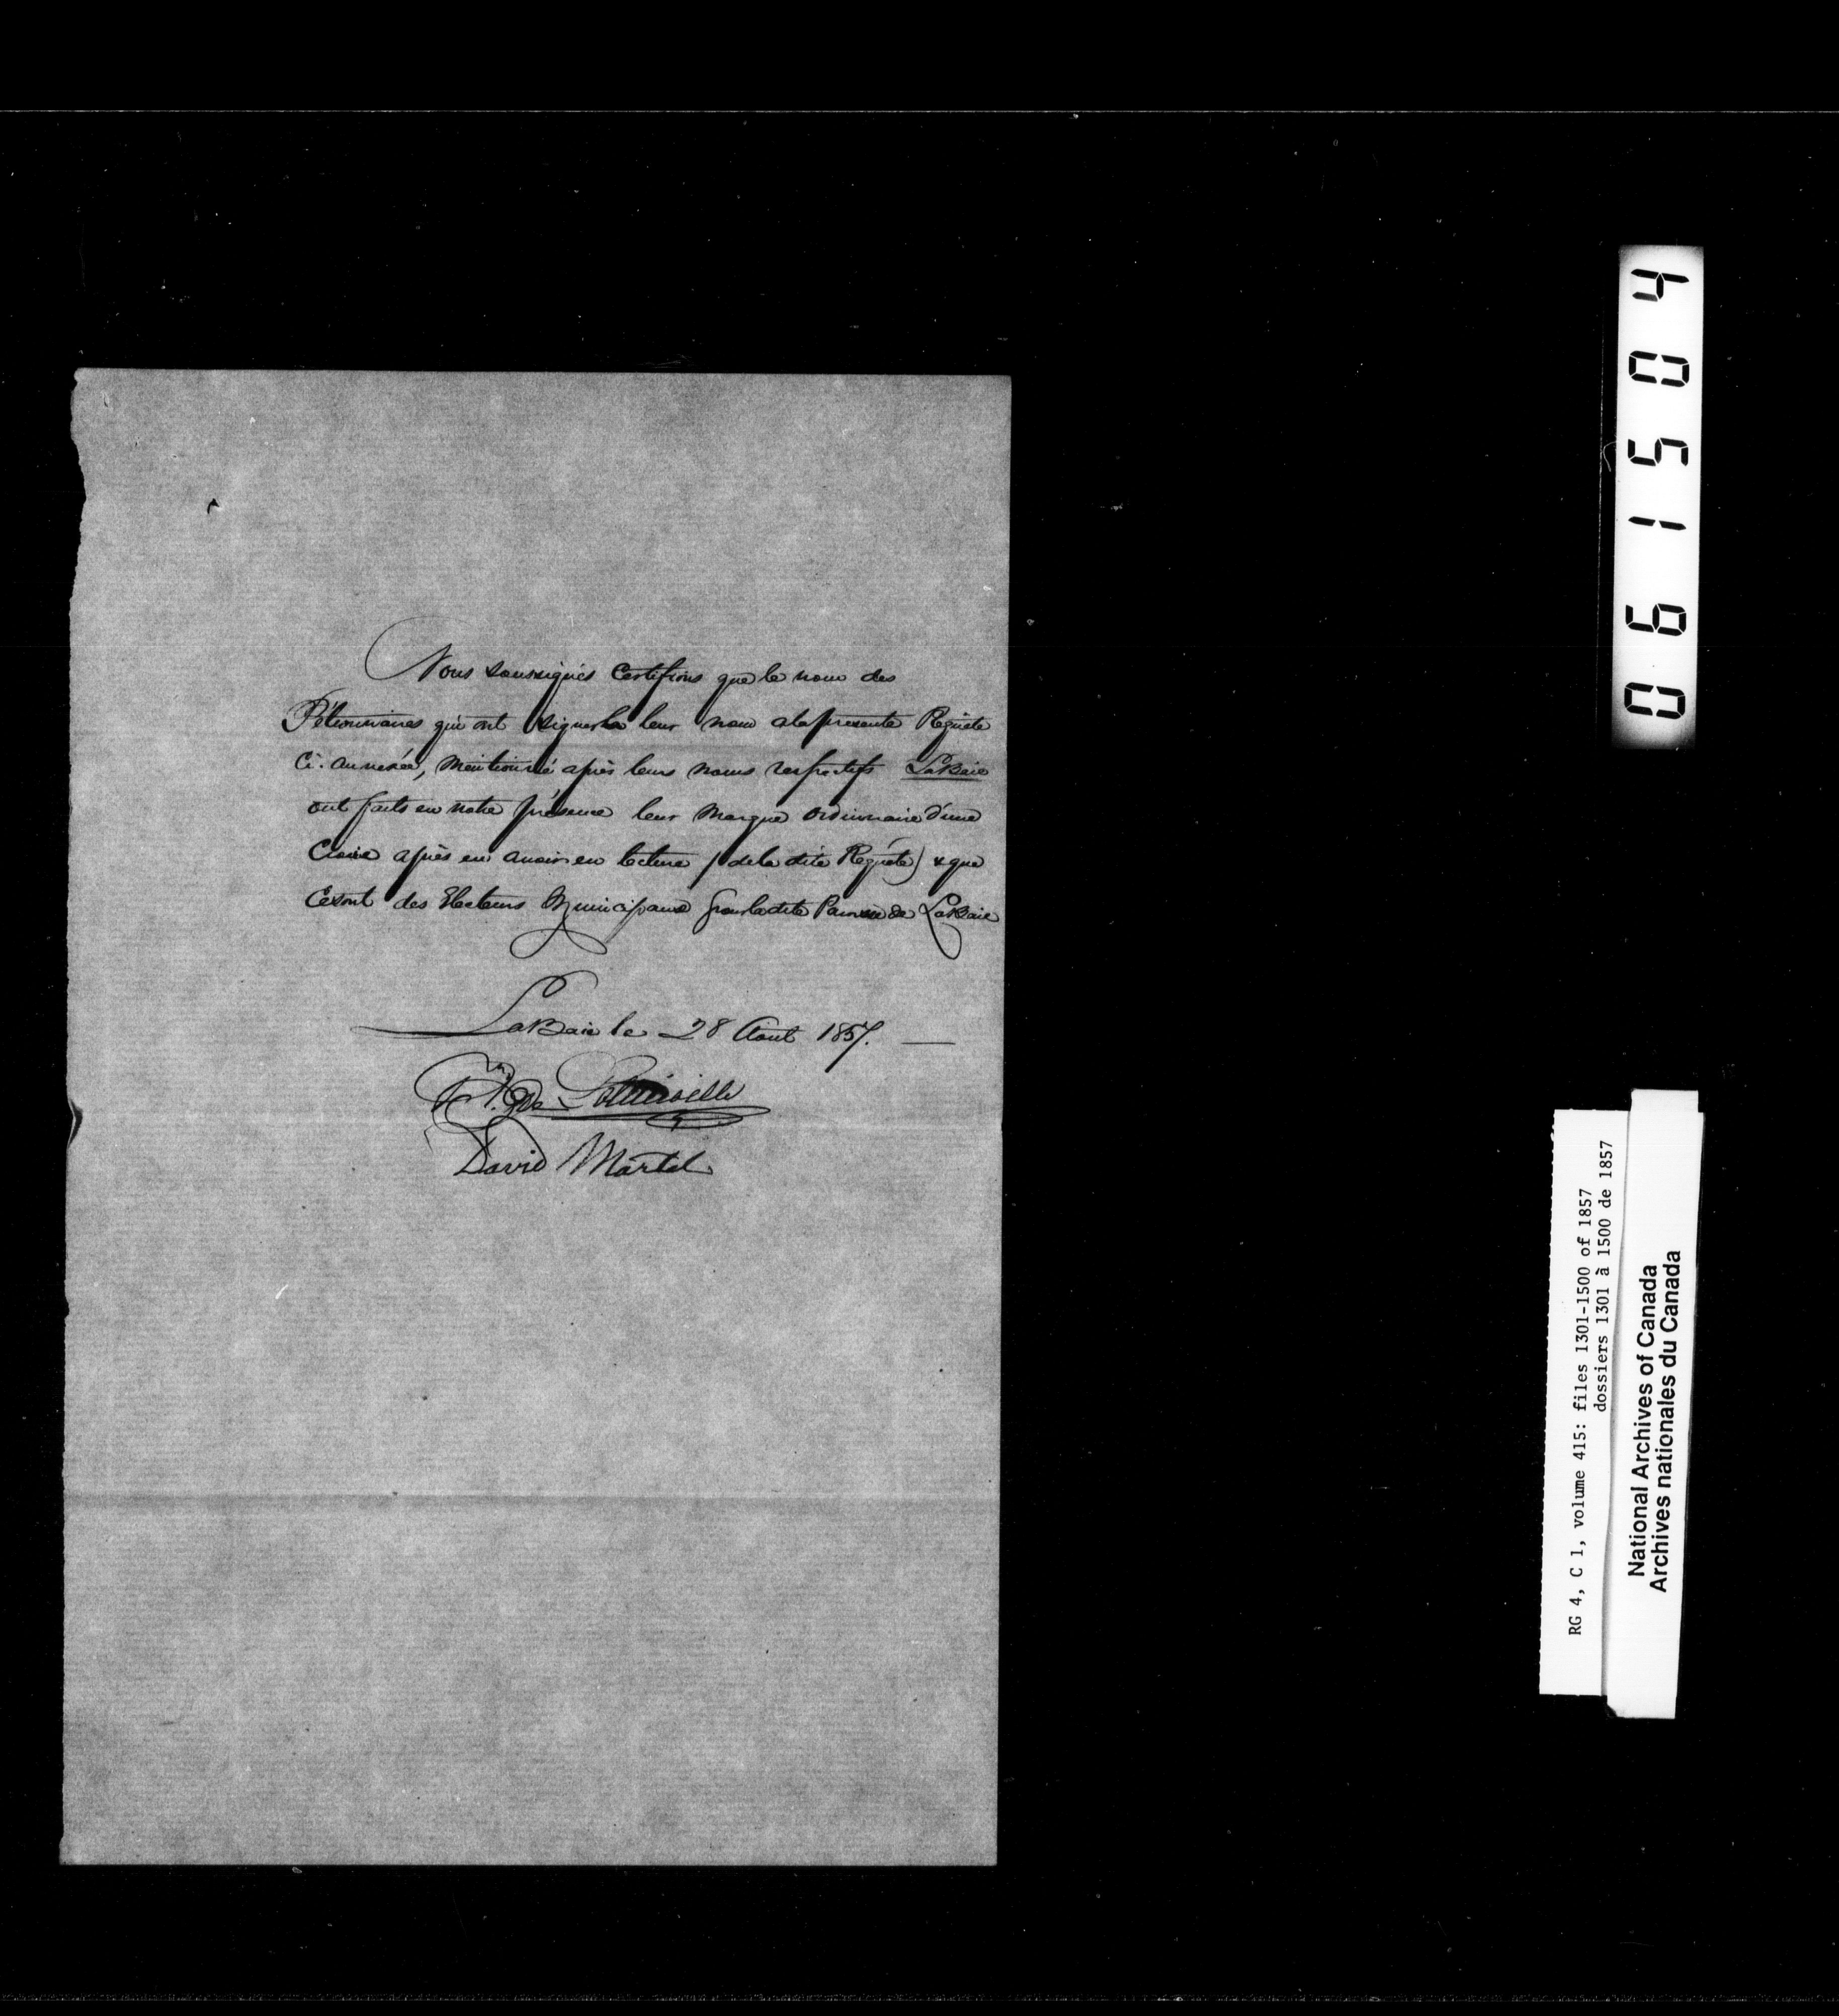 Nous soussignés Certifions que le nom des
Pétionnaires qui ont signés leur nom a la presente Requête
Ci-annexée, Mentionné après leurs noms respectifs LaBaie
ont faits en notre présence leur Marque ordinnaire d'une
Croix après en avoir eu lecture (de la dite Requête) & que
Ce sont des Electeurs Municipaux pour la dite Paroisse de LaBaie
LaBaie le 28 Aout 1857.
David Martel
061504
RG 4, C 1, volume 415: files 1301-1500 of 1857
dossiers 1301 à 1500 de 1857
National Archives of Canada
Archives nationales du Canada